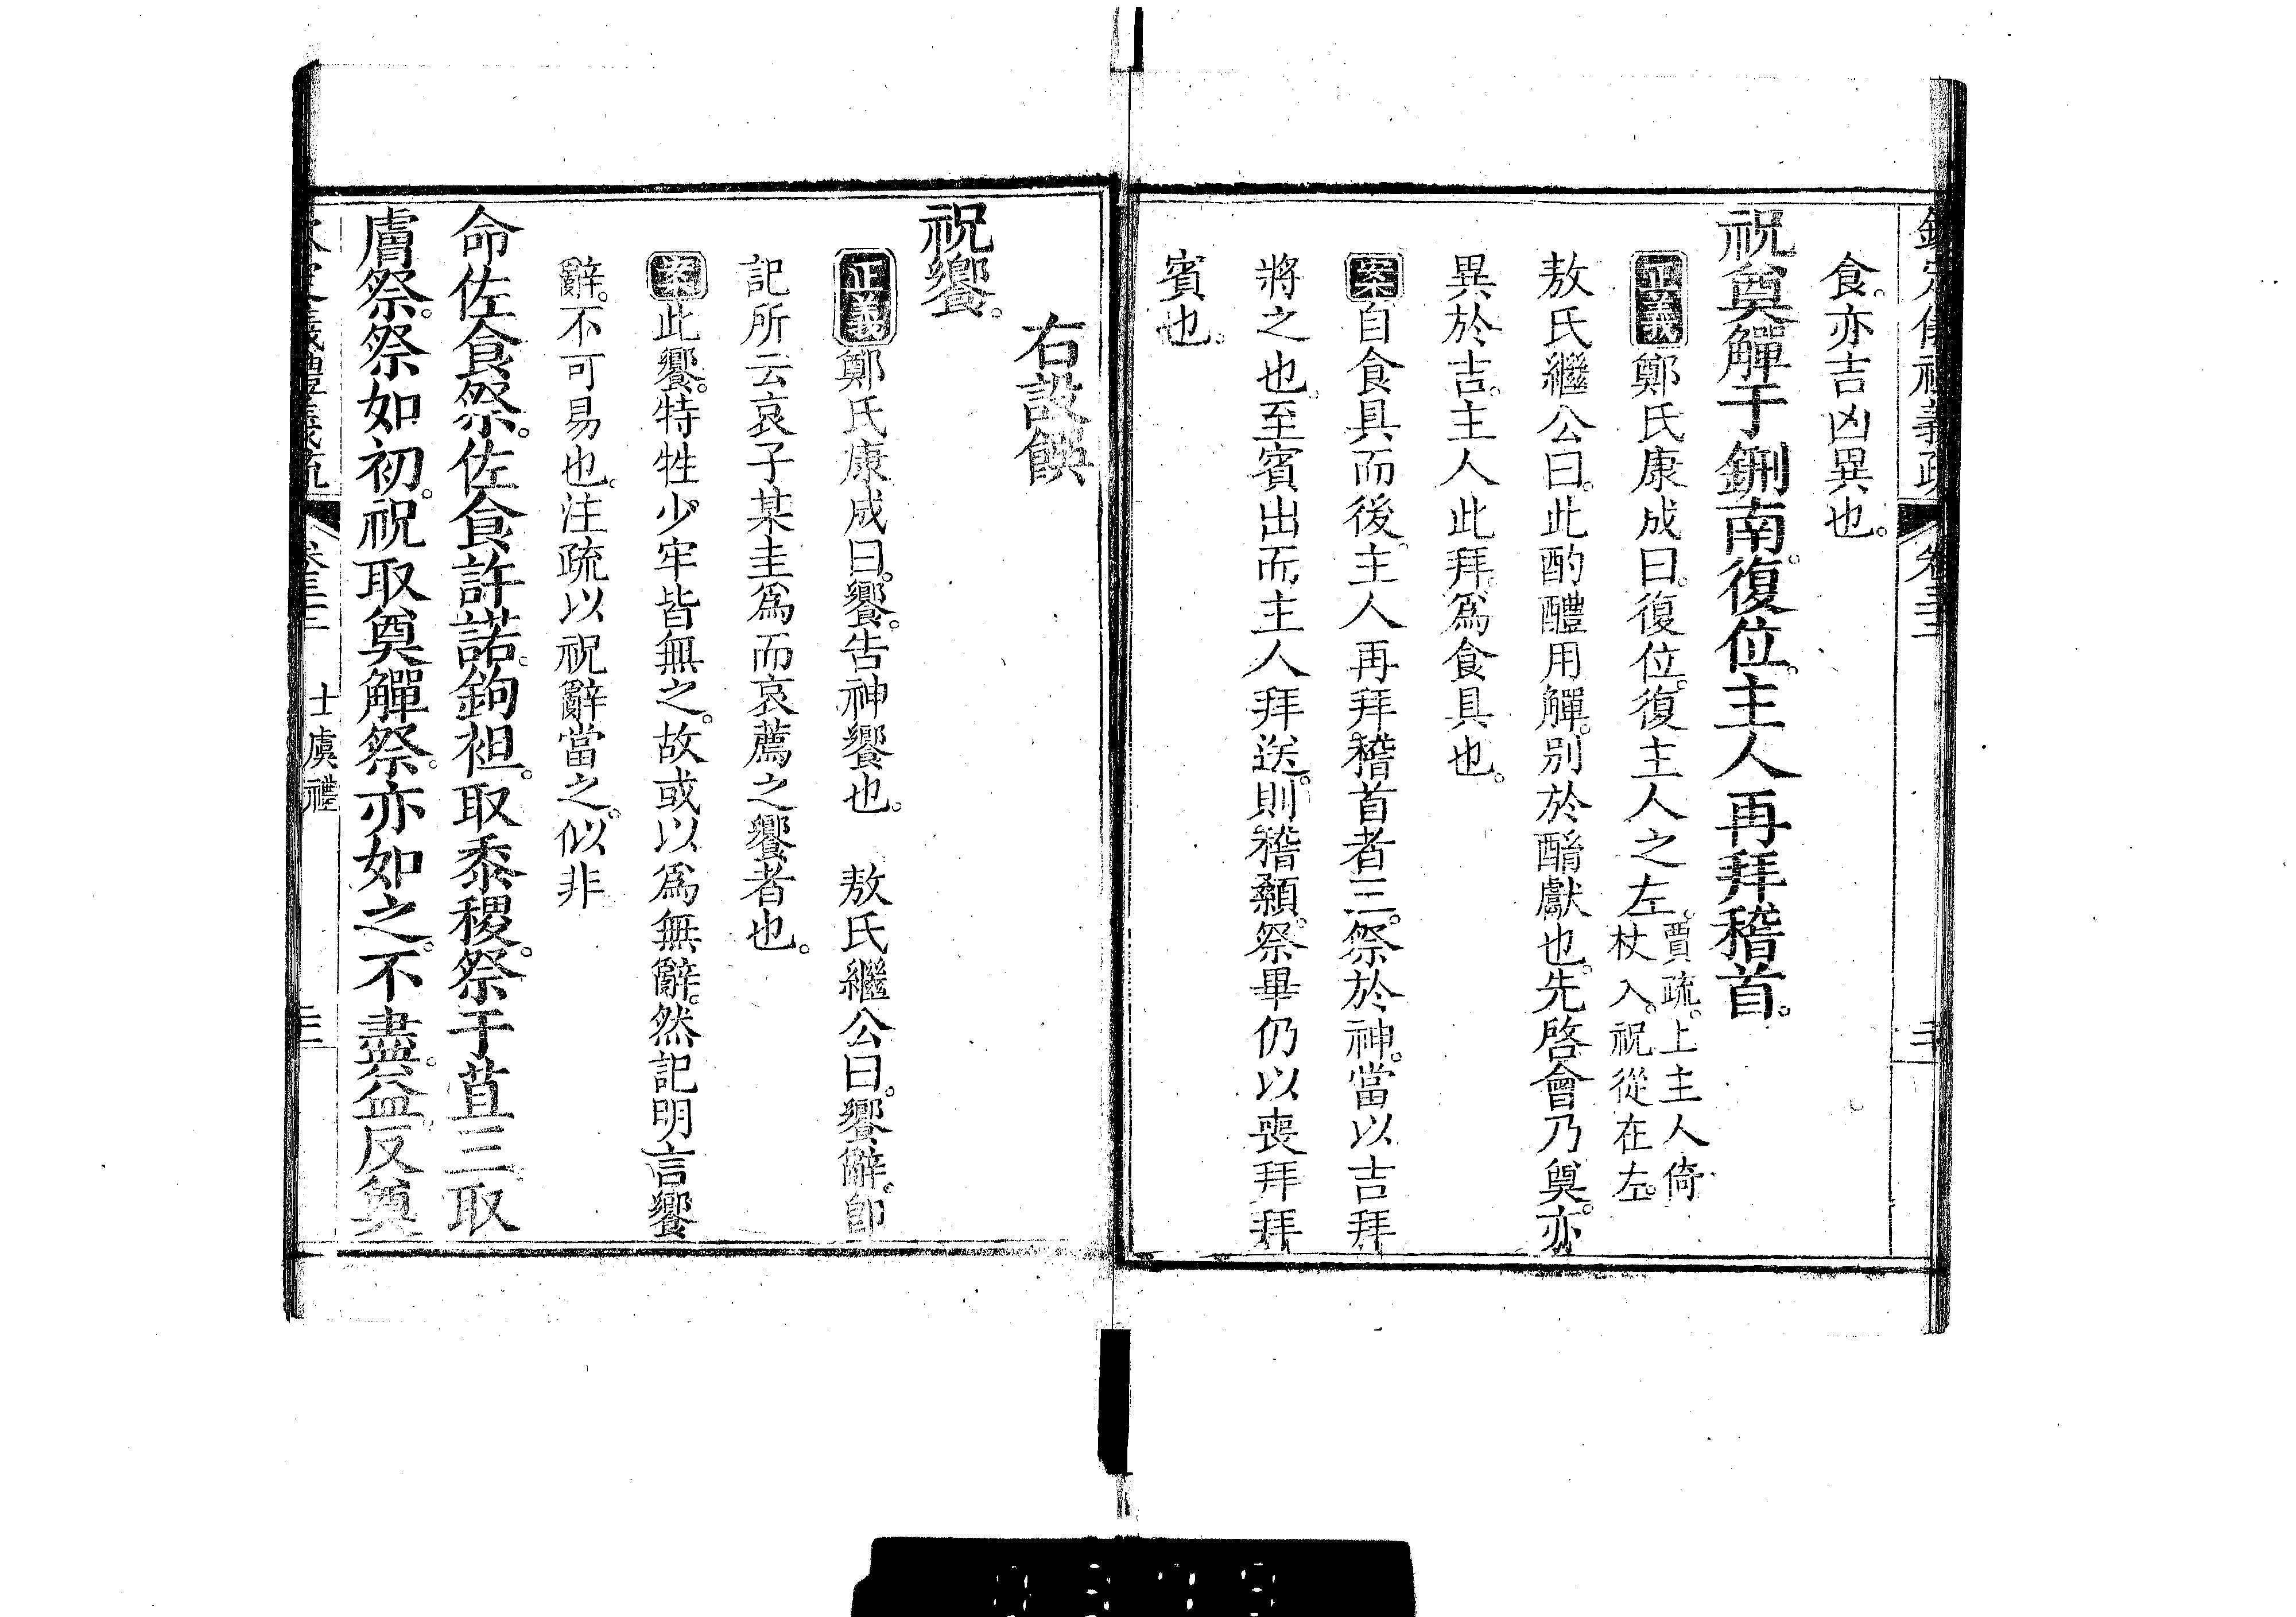 欽定儀禮義疏 卷三三
食。亦吉凶異也。
祝奠觶于鉶南。復位。主人再拜稽首。
正義鄭氏康成曰。復位。復主人之左。賈疏。上主人倚杖入。祝從在左。
敖氏繼公曰。此酌醴用觶。别於酳獻也。先啓會乃奠。亦
異於吉。主人此拜。爲食具也。
案自食具而後。主人再拜稽首者三。祭於神。當以吉拜
將之也。至賓出而主人拜送。則稽顙。祭畢仍以喪拜拜
賓也。
右設饌
祝饗。
正義鄭氏康成曰。饗。告神饗也。 敖氏繼公曰。饗辭。卽
記所云哀子某圭爲而哀薦之饗者也。
案此饗。特牲少牢皆無之。故或以爲無辭。然記明言饗
辭。不可易也。注疏以祝辭當之。似非
命佐食祭。佐食許諾。鉤袒。取黍稷。祭于苴三。取
膚祭。祭如初。祝取奠觶祭。亦如之。不盡。益。反奠
士虞禮